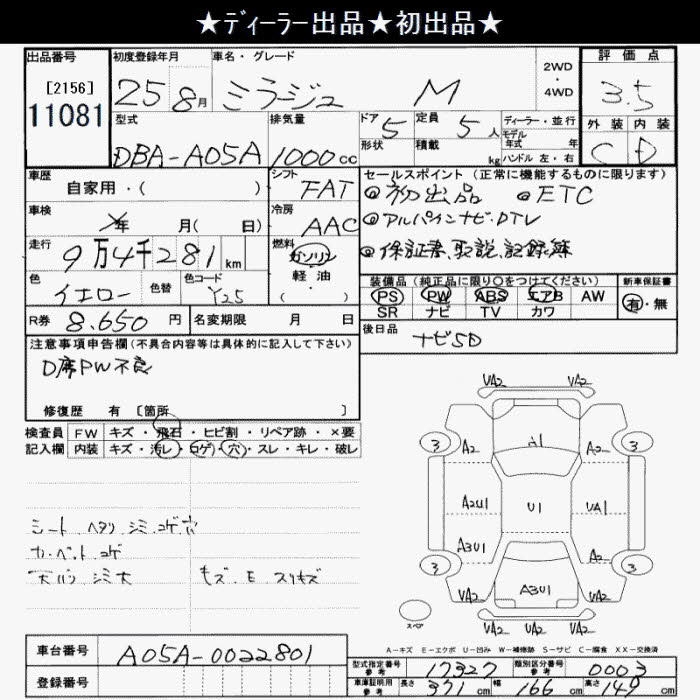 ★ディーラー出品★初出品★
出品番号 初度登録年月 車名・グレード 2WD・4WD 評価点
[2156] 11081 25 8月 ミラージュ M 3.5
型式 排気量 ドア 5 形状 定員 5人 積載 kg ディーラー・並行 モデル年式 年 ハンドル 左・右 外装 内装
DBA-A05A 1000cc C D
車歴 自家用・( ) シフト FAT セールスポイント(正常に機能するものに限ります)
◎初出品 ◎ETC
車検 年 月( 日) 冷房 AAC ◎アルパインナビ.DTV
走行 9万4千281km 燃料 ガソリン 軽油 ( ) ◎保証書、取説、記録簿
色 イエロー 色替 色コード Y25 装備品(純正品に限り○をつけてください) 新車保証書
PS PW ABS エアB AW 有・無
SR ナビ TV カワ
R券 8.650円 名変期限 月 日 後日品 ナビSD
注意事項申告欄(不具合内容等は具体的に記入して下さい)
D席PW不良
修復歴 有 [箇所 ]
検査員 FW キズ・飛石・ヒビ割・リペア跡・×要
記入欄 内装 キズ・汚レ・コゲ・穴・スレ・キレ・破レ
シート ヘタリ シミ コゲ穴
カーペット コゲ
天バリ シミ大 キズ.E.スリキズ
VA2 VA2
3 A2 A1 A2 3
A2U1 U1 UA1
A3U1 A2
3 VA2 A3U1 VA2 3
VA2 VA2 VA2
スペア
A-キズ E-エクボ U-凹み W-補修跡 S-サビ C-腐食 XX-交換済
車台番号 A05A-0022801
登録番号
型式指定番号 参考 17327 類別区分番号 参考 0003
車庫証明用 参考 長さ 371cm 幅 166cm 高さ 149cm